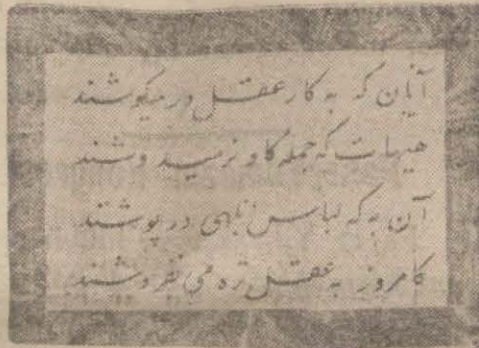 آنان که به کار عقل در میکوشند
هیهات که جمله گاو نر میدوشند
آن به که لباس ابلهی در پوشند
کامروز به عقل تره می نفروشند